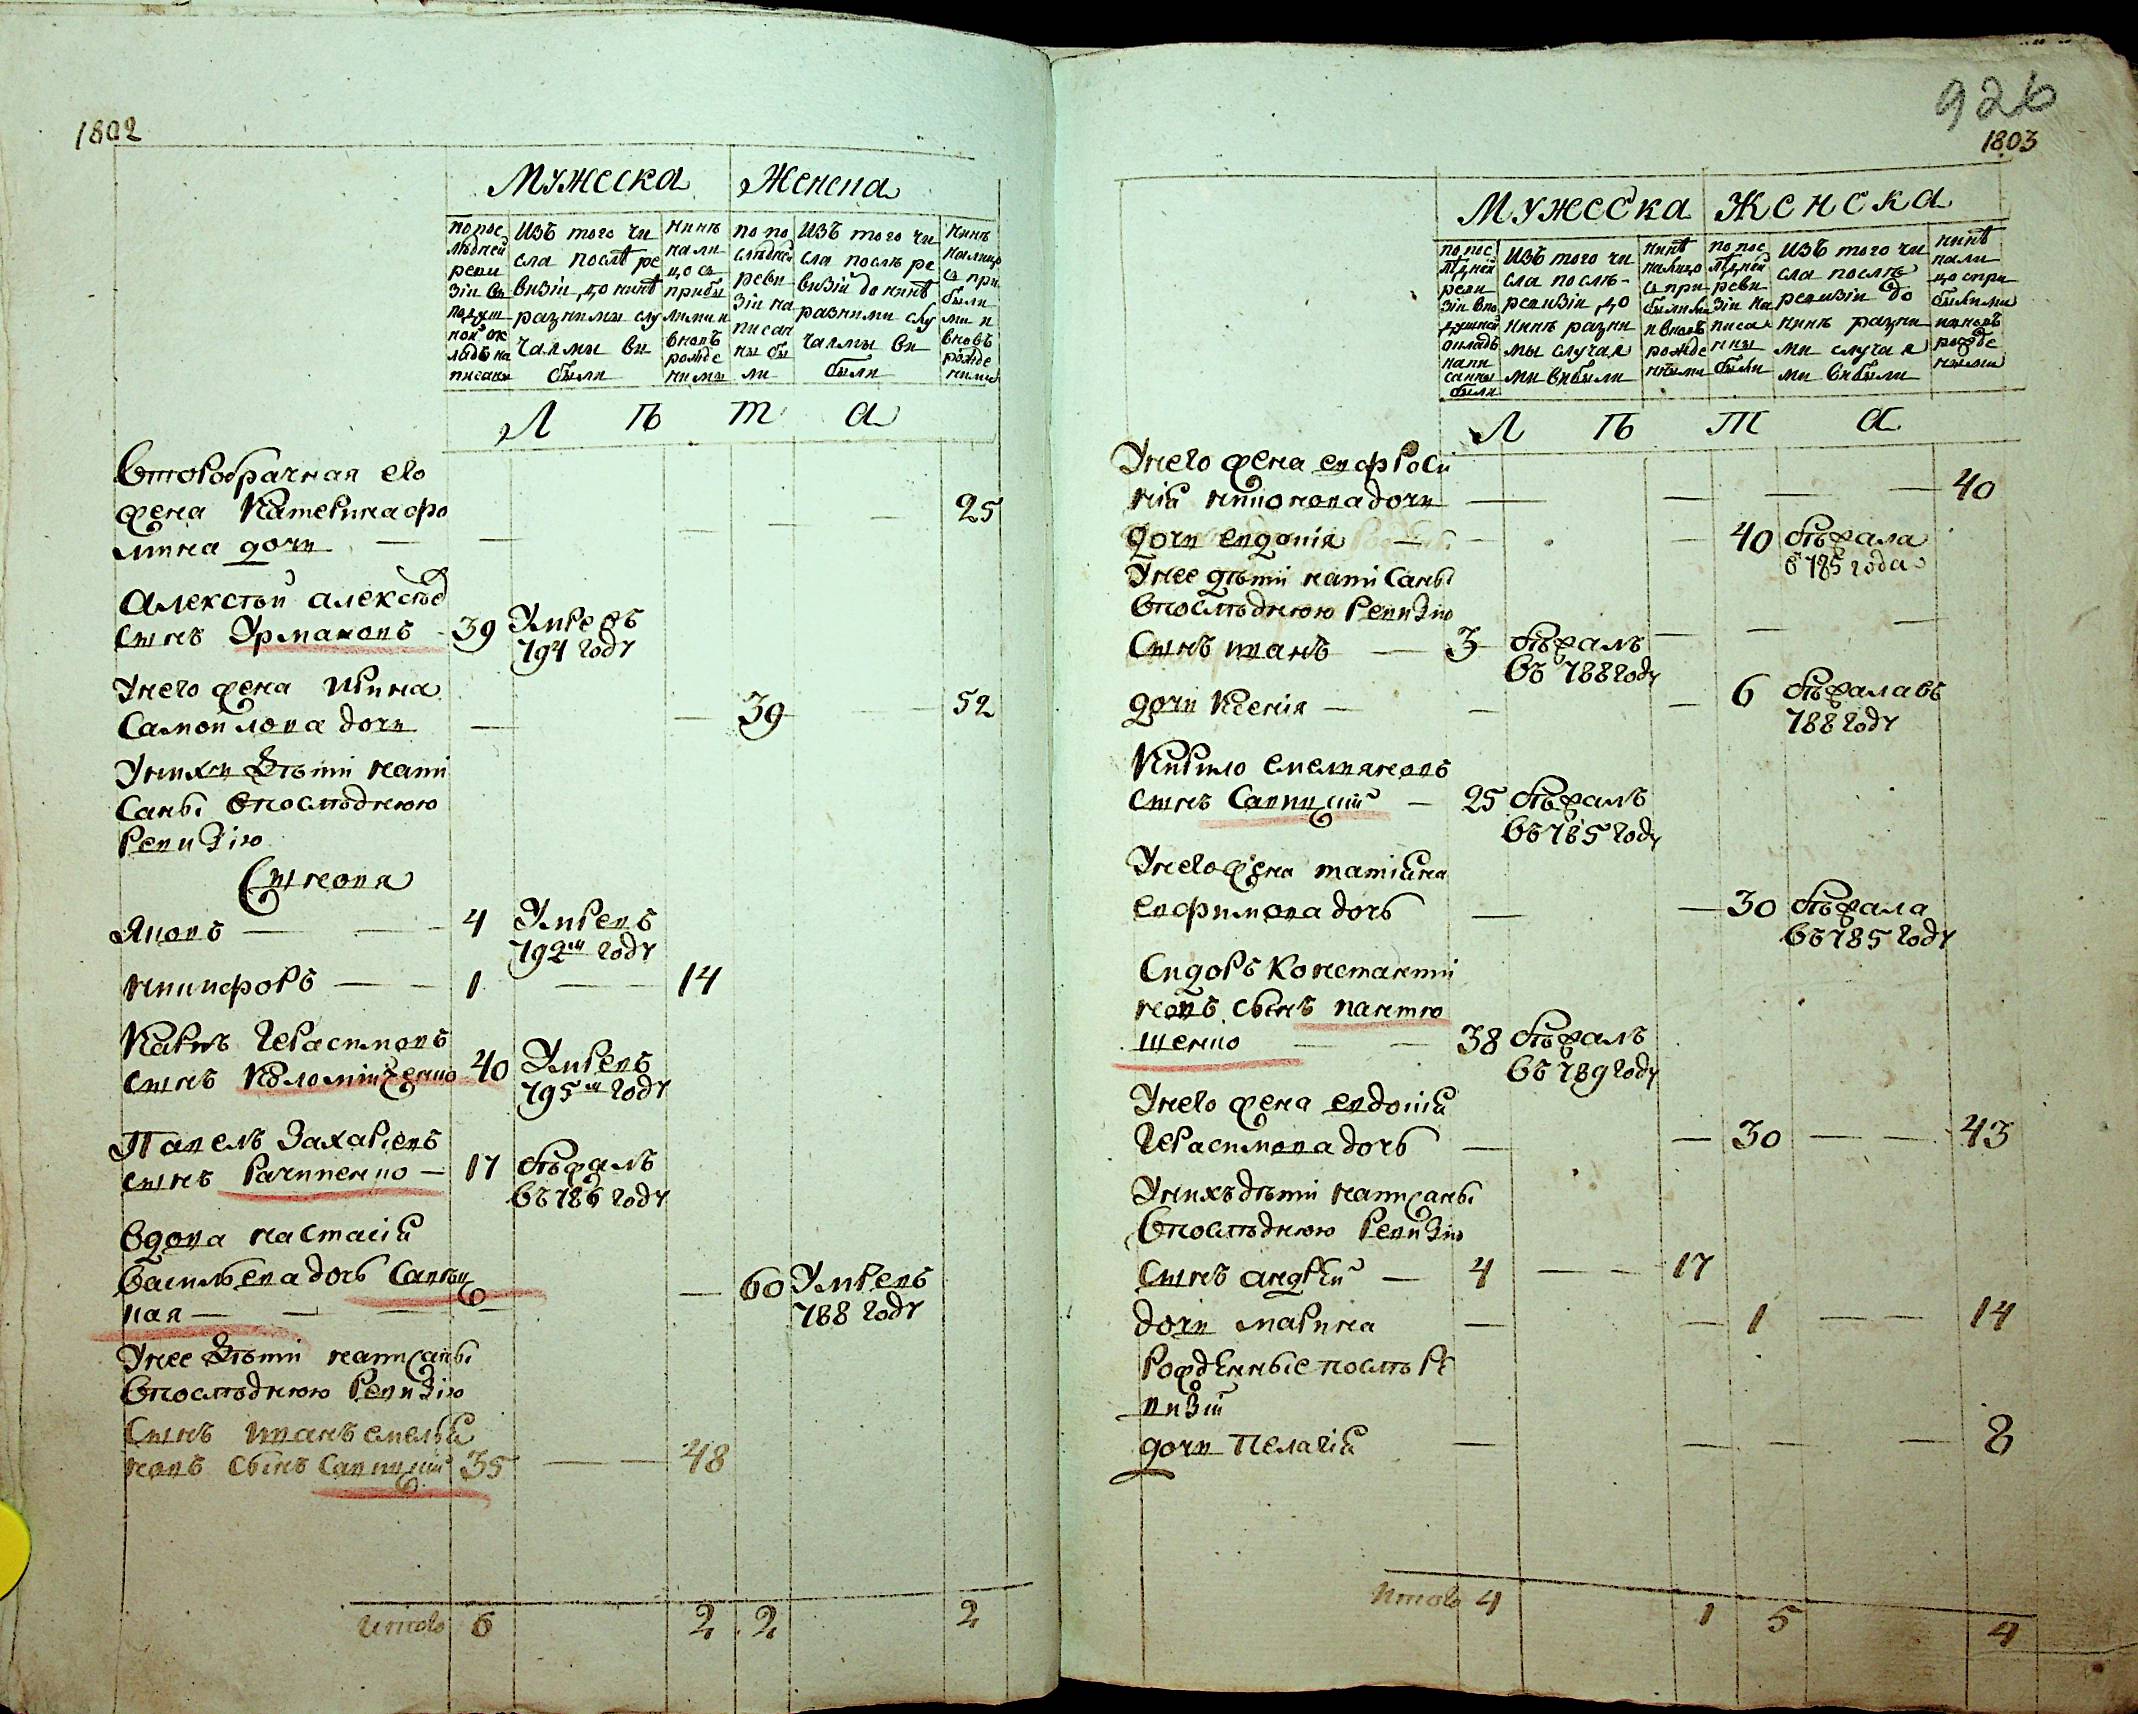 1802
Мужеска Женска
по пос
лѣдней
реви
зіи въ
подуш
ной ок
ладъ на
писаны
Изъ того чи
сла послѣ ре
визіи до нинѣ
разними слу
чаями ви
были
нинѣ
нали
цо съ
прибы
лими и
вновъ
рожде
ними
по по
слѣдней
реви
зіи на
писан
ны бы
ли
Изъ того чи
сла послѣ ре
визіи до нинѣ
разними слу
чаями ви
были
нинѣ
налицо
съ при
были
ми и
вновъ
рожде
ними
Л ѣ т а
Второбрачная его
жена Катерина фо
мина дочи — — — — — 25
Алексѣй алексѣев
сынъ Урмановъ 39 Умревъ
794 году
У него жена Ирина
Самойлова дочи — — 39 — — 52
У нихъ дѣти напи
саны в последнюю
Ревизію
Сыновя
Яковъ — — 4 Умревъ
792м году
никифоръ — — 1 — — 14
Карпъ Герасимовъ
сынъ Коломійченко 40 Умревъ
795м году
Павелъ Захаріевъ
сынъ Рачипенко — 17 бѣжалъ
въ 786 году
Вдова настасія
Васильева дочь Савиц
кая — — — — — 60 Умревъ
788 году
У нее дѣти написаны
в последнюю Ревизію
Сынъ иванъ емелья
новъ сынъ Савицкий 35 — — 48
Итого 6 2 2 2
926
1803
Мужеска Женска
по пос
лѣдней
реви
зіи в по
душной
окладъ
напи
санны
были
Изъ того чи
сла послѣ
ревизіи до
нинѣ разни
мы случая
ми вибыли
нинѣ
налицо
съ при
былими
и вновъ
рожде
нными
по пос
лѣдней
реви
зіи на
писа
нны
были
Изъ того чи
сла послѣ
ревизіи до
нинѣ разни
ми случая
ми вибыли
нинѣ
нали
цо с при
былими
и вновъ
рожде
ными
Л ѣ т а
У него жена евфроси
нія никонова дочи — — — — 40
дочи евдокія — — — 40 бѣжала
в 785 года
У нее дѣти написаны
в последнюю Ревизію
Сынъ иванъ — 3 бѣжалъ — — —
въ 788 году
дочи Ксенія — — — 6 бѣжала въ
788 году
Кирило емельяновъ
сынъ Савицкий — 25 бѣжалъ
въ 785 году
У него жена татіяна
ефимова дочь — — 30 бѣжала
въ 785 году
Сидоръ Константи
новъ сынъ пантю
шенко — — 38 бѣжалъ
въ 789 году
У него жена евдокія
Герасимова дочь — — 30 — — 43
У нихъ дѣти написаны
в последнюю Ревизію
Сынъ андрей — 4 — — 17
дочи марина — — 1 — — 14
Рожденные послѣ Ре
визіи
дочи Пелагія — — — — 8
Итого 4 1 5 4